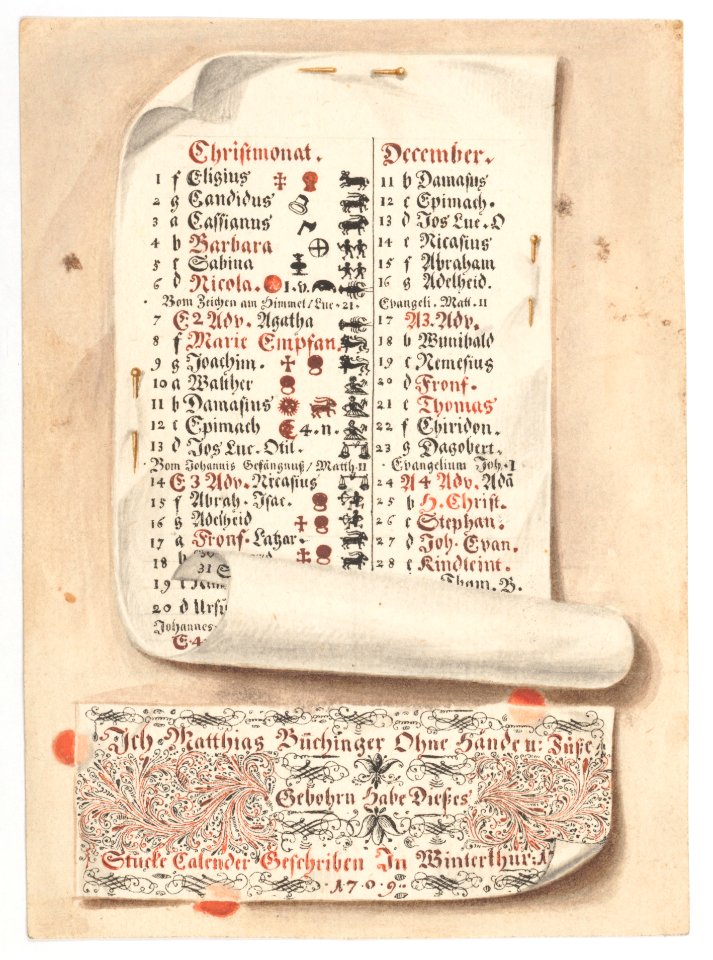 Christmonat.
1 f Eligius
2 g Candidus
3 a Cassianus
4 b Barbara
5 c Sabina
6 d Nicola. 1.v.
Vom Zeichen am Himmel/Luc.21.
7 E 2 Adv. Agatha
8 f Marie Empfan.
9 g Joachim.
10 a Walther
11 b Damasius
12 c Epimach 4.n.
13 d Jos Luc. Otil.
Vom Johannis Gefängnuß/Matth.11
14 E 3 Adv. Nicasius
15 f Abrah. Isac.
16 g Adelheid
17 a Fronf. Lazar.
18 b
19 c
20 d Ursi
Johannes.
E.4.
31
December.
11 b Damasus
12 c Epimach.
13 d Jos Luc. O
14 e Nicasius
15 f Abraham
16 g Adelheid.
Evangeli. Matt.11
17 A3. Adv.
18 b Wunibald
19 c Nemesius
20 d Fronf.
21 e Thomas
22 f Chiridon.
23 g Dagobert.
Evangelium Joh.1
24 A 4 Adv. Adā
25 b H. Christ.
26 c Stephan.
27 d Joh. Evan.
28 e Kindleint.
Tham. B.
Ich Matthias Büchinger Ohne Hände u: Füße
Gebohrn Habe Dießes
Stucke Calender Geschriben In Winterthur:
1709.